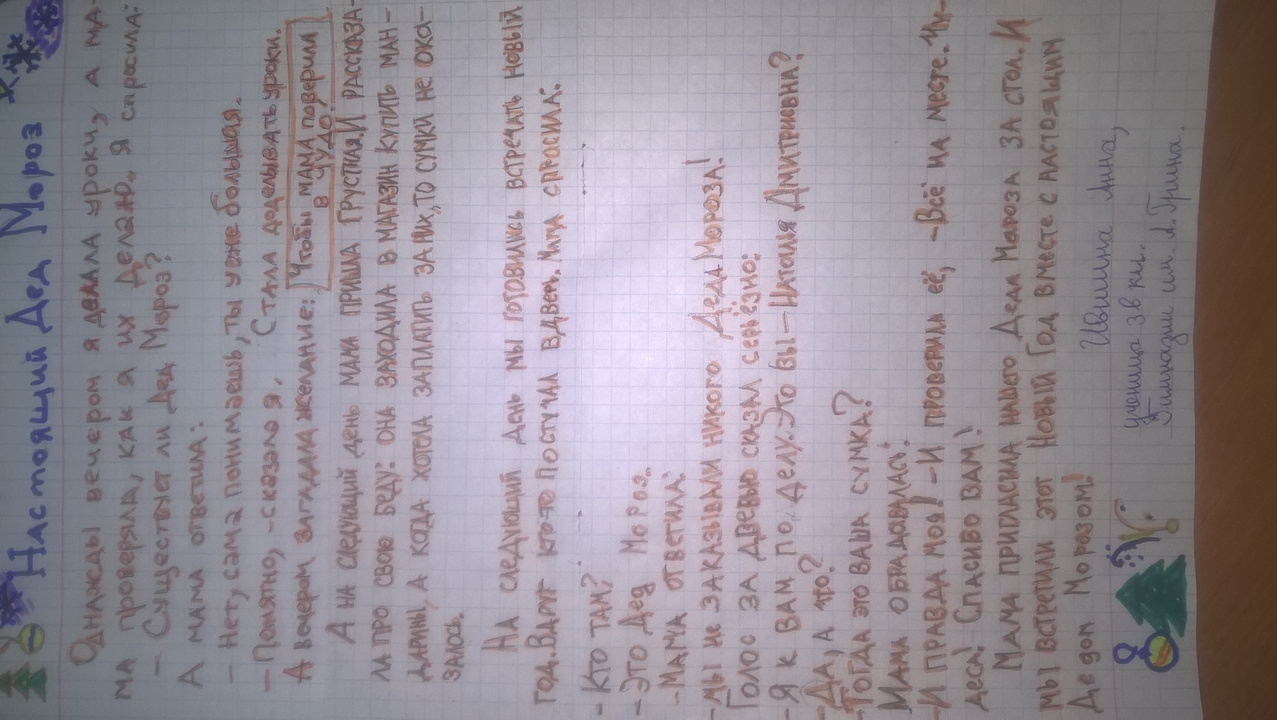 Настоящий Дед Мороз
Однажды вечером я делала уроки, а ма-
ма проверяла, как я их делаю. Я спросила:
- Существует ли Дед Мороз?
А мама ответила:
- Нет, сама понимаешь, ты уже большая.
- Понятно, - сказала я. Стала доделывать уроки.
А вечером загадала желание: Чтобы мама поверила
в чудо!
А на следующий день мама пришла грустная. И рассказа-
ла про свою беду: она заходила в магазин купить ман-
дарины, а когда хотела заплатить за них, то сумки не ока-
залось.
На следующий день мы готовились встречать новый
год. Вдруг кто-то постучал в дверь. Мама спросила:
- Кто там?
- Это Дед Мороз.
- Мама ответила:
- Мы не заказывали никого Деда Мороза!
Голос за дверью сказал серьёзно:
- Я к вам по делу. Это вы - Наталия Дмитриевна?
- Да, а что?
- Тогда это ваша сумка?
Мама обрадовалась:
- И правда моя! - И проверила её, - Всё на месте. Чу-
деса! Спасибо Вам!
Мама пригласила нашего Деда Мороза за стол. И
мы встретили этот Новый Год вместе с настоящим
Дедом Морозом!
Ившина Анна,
ученица 3в кл.
Гимназии им. А. Грина.